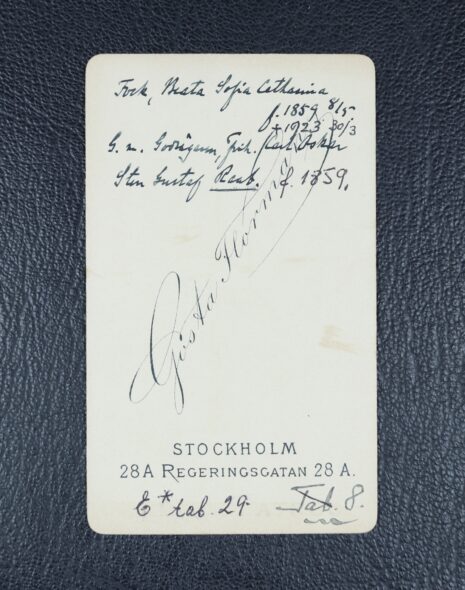 Fock, Beata Sofia Catharina
f. 1859 8/5
+ 1923 30/3
G. m. Godsägaren, Frih. Karl Oskar
Sten Gustaf Raab. f. 1859.
Gösta Florman
STOCKHOLM
28A REGERINGSGATAN 28 A.
E* tab. 29. Tab. 8.